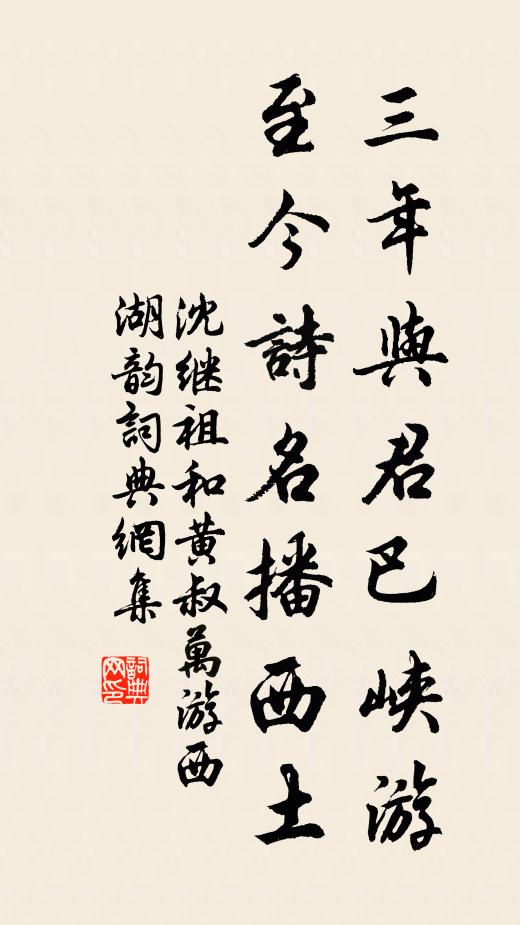 三年與君巴峡游
至今詩名播西土
沈继祖和黄叔萬游西
湖韵詞典網集
詞典网印